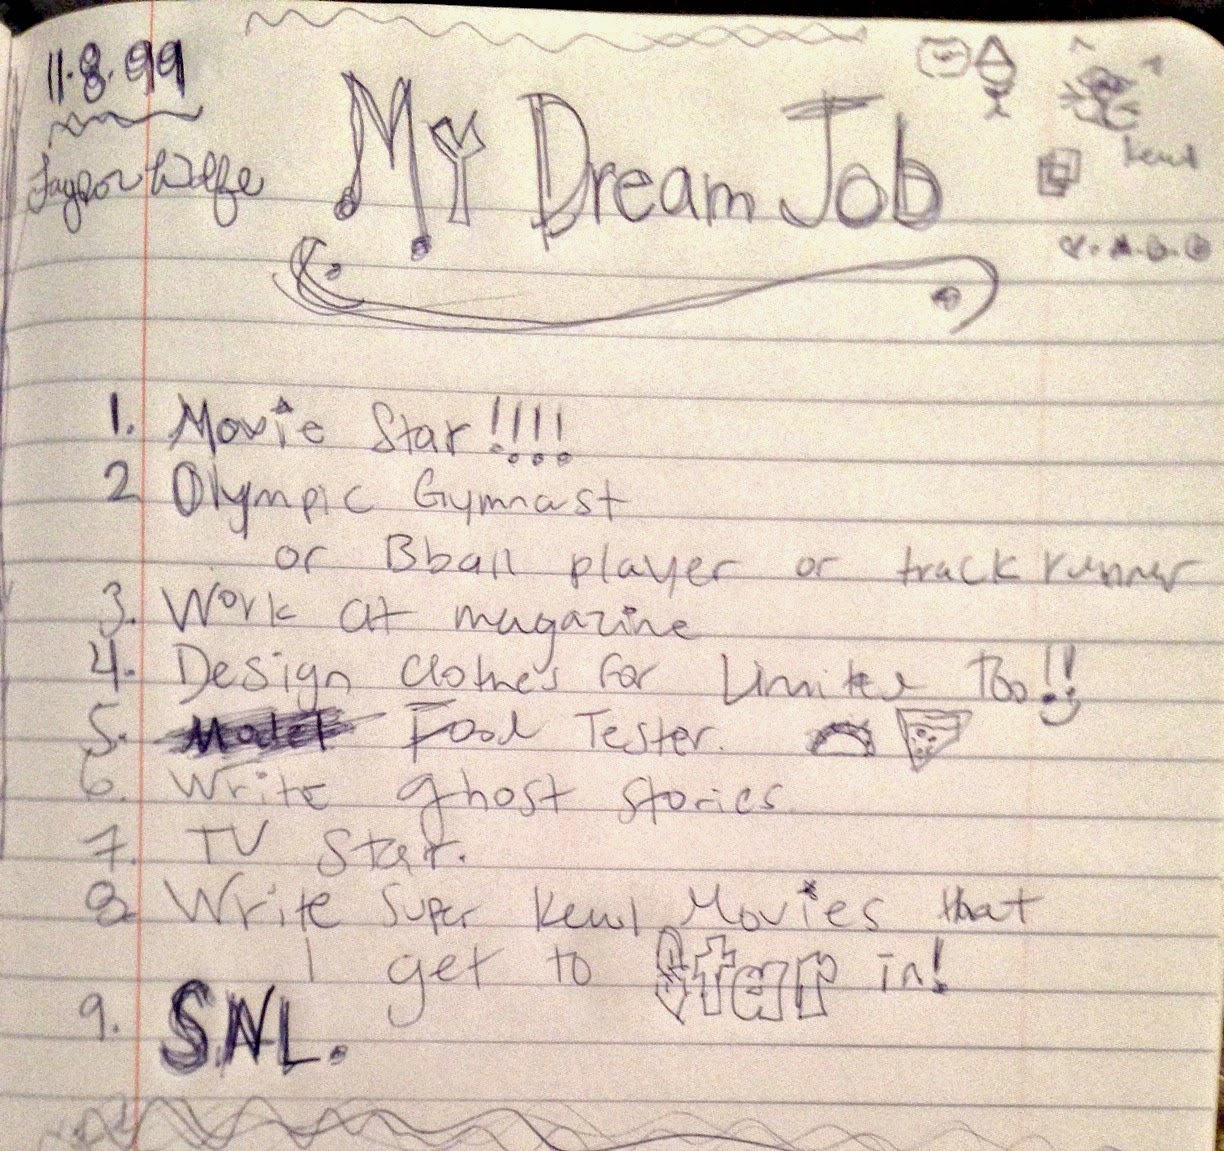 11.8.99
Taylor Wolfe
My Dream Job
kewl
1. Movie Star!!!!
2 Olympic Gymnast
or Bball player or track runner
3. Work at magazine
4. Design clothes for Limited Too!!
5. Model Food Tester.
6. Write ghost stories.
7. TV Star.
8. Write Super Kewl Movies that
I get to Star in!
9. SNL.